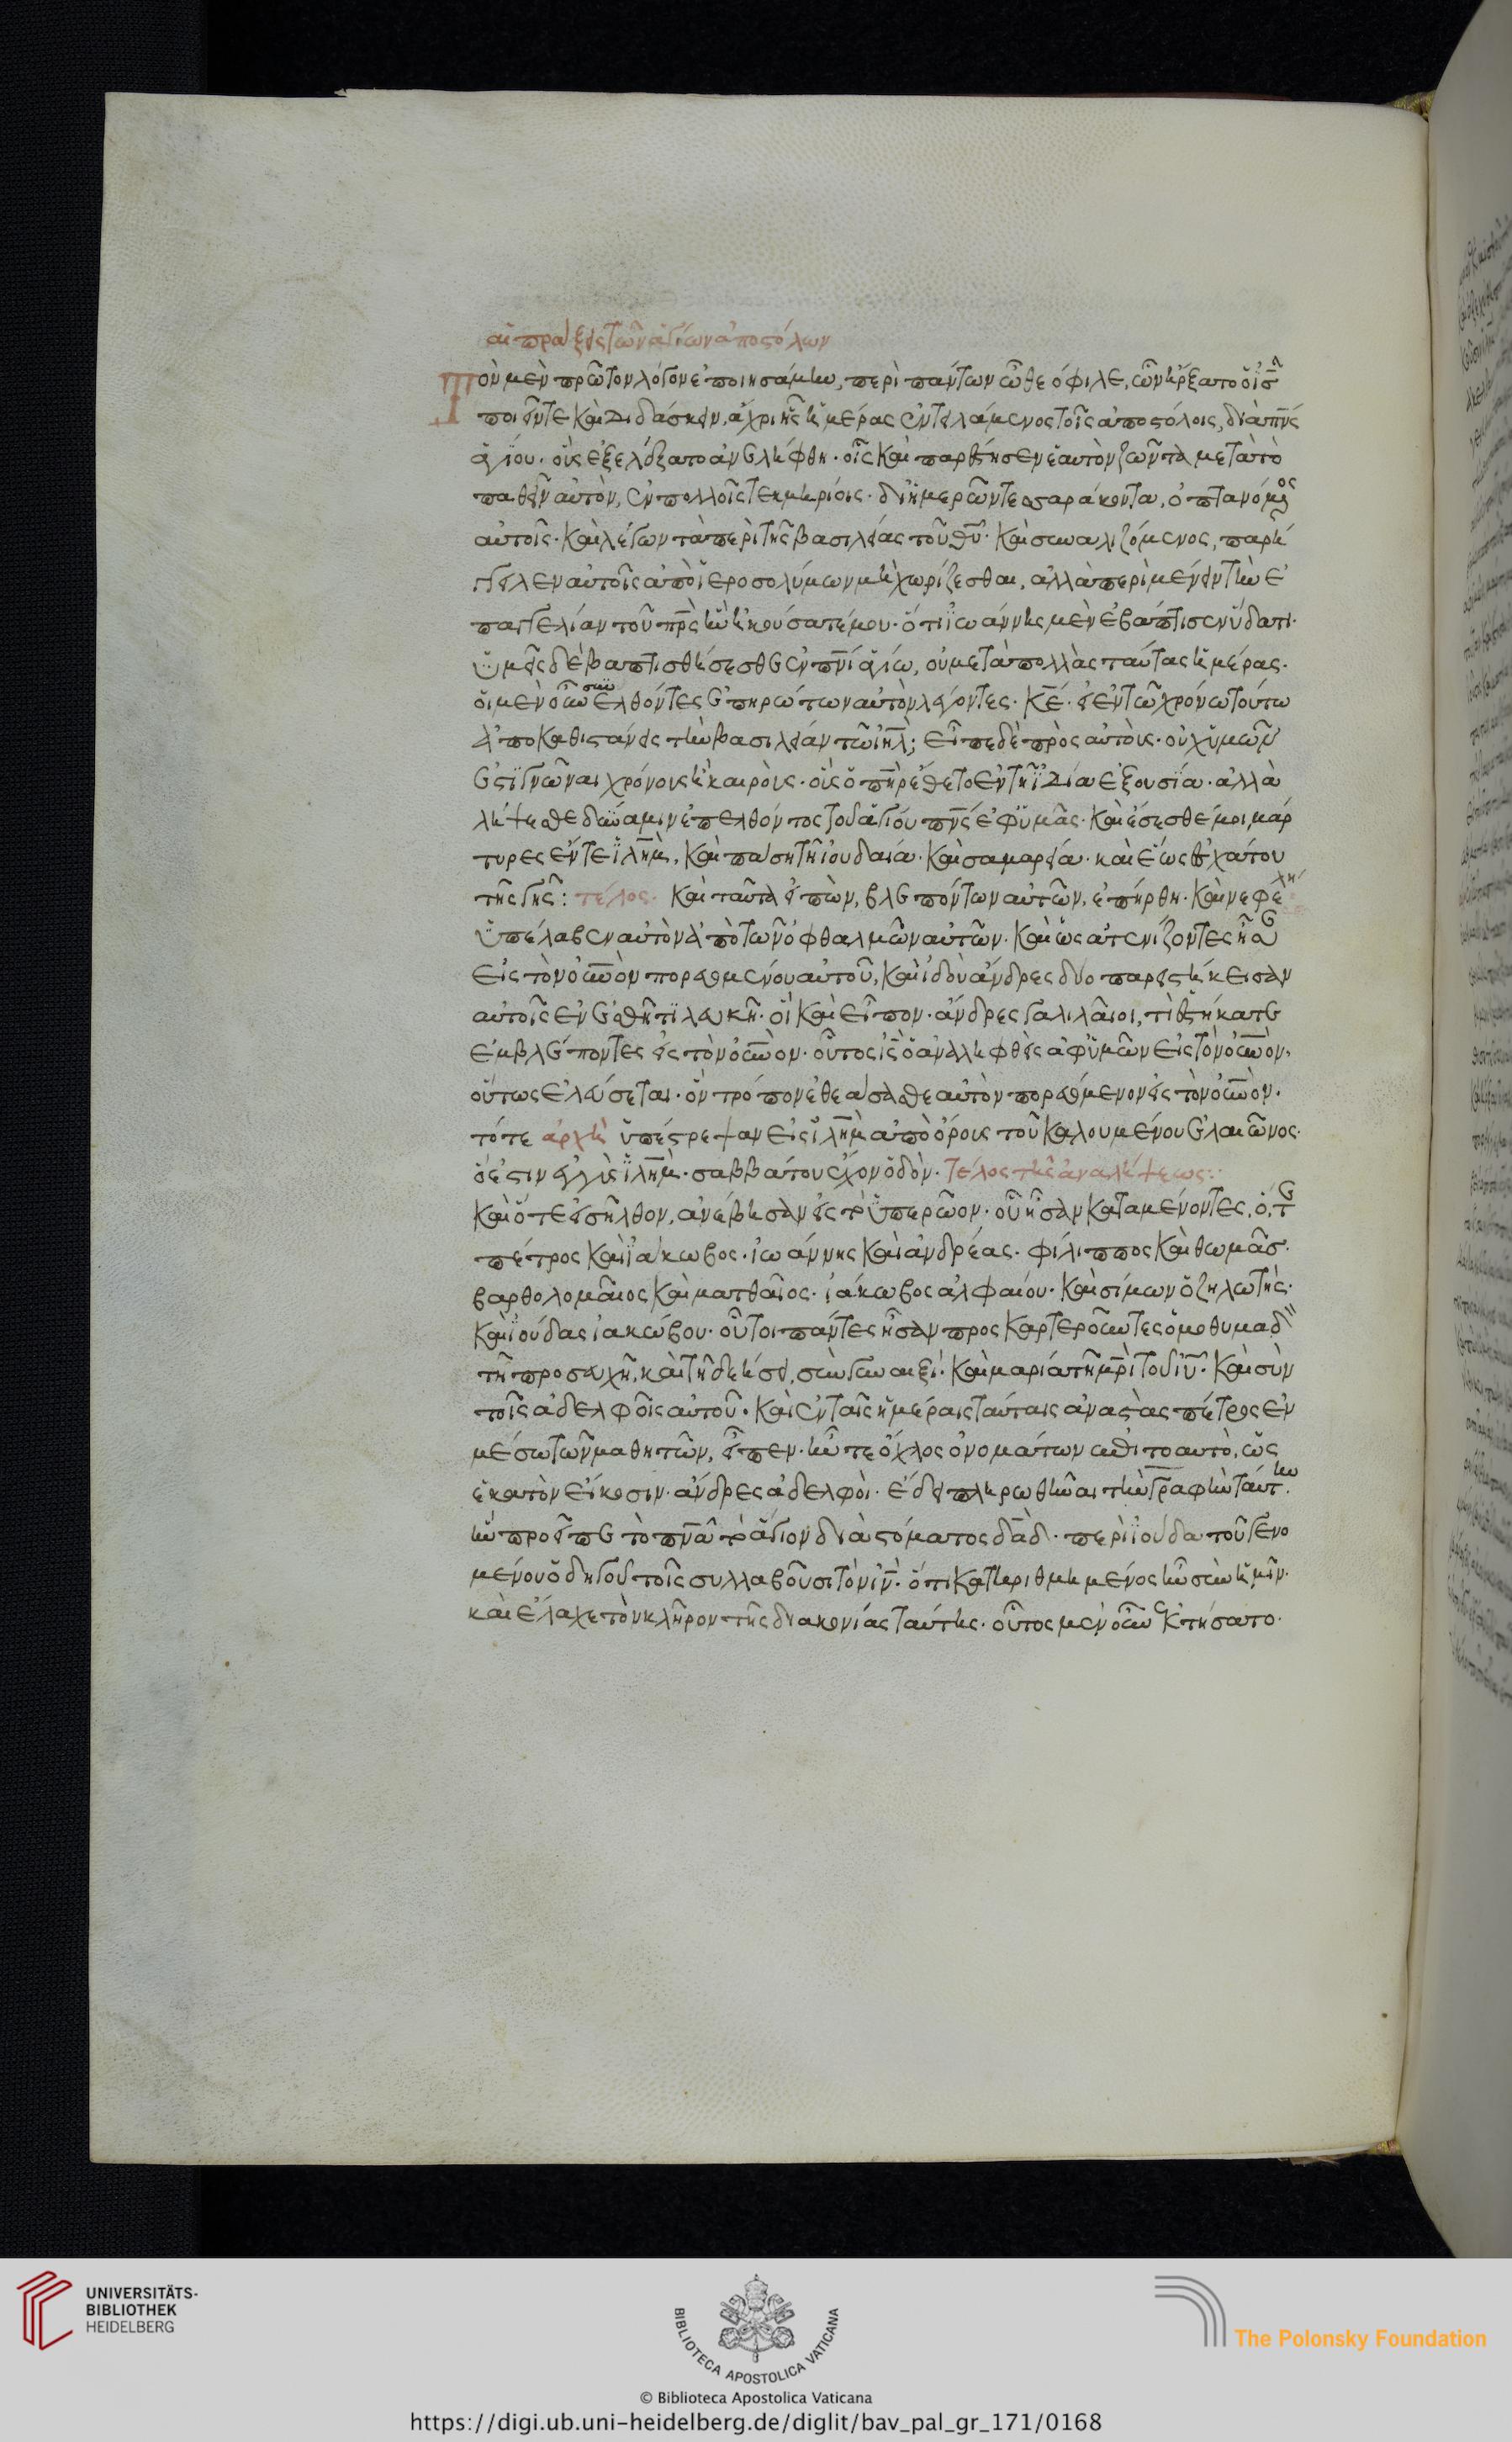 αἱ πράξεις τῶν ἁγίων ἀποστόλων
Τὸν μὲν πρῶτον λόγον ἐποιησάμην, περὶ πάντων ὦ θεόφιλε, ὧν ἤρξατο ὁ ἰς̅
ποιεῖν τε καὶ διδάσκειν, ἄχρι ἧς ἡμέρας ἐντειλάμενος τοῖς ἀποστόλοις, διὰ πν̅ς
ἁγίου· οὓς ἐξελέξατο ἀνελήφθη· οἷς καὶ παρέστησεν ἑαυτὸν ζῶντα μετὰ τὸ
παθεῖν αὐτὸν, ἐν πολλοῖς τεκμηρίοις· δι ἡμερῶν τεσσαράκοντα, ὀπτανόμενος
αὐτοῖς· καὶ λέγων τὰ περὶ τῆς βασιλείας τοῦ θυ̅· καὶ συναλιζόμενος, παρή
γγειλεν αὐτοῖς ἀπὸ ἱεροσολύμων μὴ χωρίζεσθαι, ἀλλὰ περιμένειν τὴν ἐ
παγγελίαν τοῦ πρ̅ς ἣν ἠκούσατέ μου· ὅτι ἰωάννης μὲν ἐβάπτισεν ὕδατι·
ὑμεῖς δὲ βαπτισθήσεσθε ἐν πν̅ι ἁγίω, οὐ μετὰ πολλὰς ταύτας ἡμέρας·
οἱ μὲν οὖν συνελθόντες ἐπηρώτων αὐτὸν λέγοντες· κε̅· εἰ ἐν τῶ χρόνω τούτω
ἀποκαθιστάνεις τὴν βασιλείαν τῶ ιη̅λ; εἶπε δὲ πρὸς αὐτούς· οὐχ ὑμῶν
ἐστὶ γνῶναι χρόνους ἢ καιρούς· οὓς ὁ πη̅ρ ἔθετο ἐν τῆ ἰδία ἐξουσία· ἀλλὰ
λήψεσθε δύναμιν ἐπελθόντος τοῦ ἁγίου πν̅ς ἐφ ὑμᾶς· καὶ ἔσεσθέ μοι μάρ
τυρες ἔν τε ἰλη̅μ, καὶ πάση τῆ ἰουδαία· καὶ σαμαρεία· καὶ ἕως ἐσχάτου
τῆς γῆς: τέλος· καὶ ταῦτα εἰπὼν, βλεπόντων αὐτῶν, ἐπήρθη· καὶ νεφέλη
ὑπέλαβεν αὐτὸν ἀπὸ τῶν ὀφθαλμῶν αὐτῶν· καὶ ὡς ἀτενίζοντες ἦσαν
εἰς τὸν οὐ̅νὸν πορευομένου αὐτοῦ, καὶ ἰδοὺ ἄνδρες δύο παρειστήκεισαν
αὐτοῖς ἐν ἐσθῆτι λευκῆ· οἳ καὶ εἶπον· ἄνδρες γαλιλαῖοι, τί ἑστήκατε
ἐμβλέποντες εἰς τὸν οὐ̅νόν· οὗτος ὁ ις̅ ὁ ἀναληφθεὶς ἀφ ὑμῶν εἰς τὸν οὐ̅νόν,
οὕτως ἐλεύσεται· ὃν τρόπον ἐθεάσασθε αὐτὸν πορευόμενον εἰς τὸν οὐ̅νόν·
τότε ἀρχὴ ὑπέστρεψαν εἰς ἰλη̅μ ἀπὸ ὄρους τοῦ καλουμένου ἐλαιῶνος·
ὅ ἐστιν ἐγγὺς ἰλη̅μ· σαββάτου ἔχον ὁδόν· τέλος τῆς ἀναλήψεως:·
καὶ ὅτε εἰσῆλθον, ἀνέβησαν εἰς τὸ ὑπερῶον· οὗ ἦσαν καταμένοντες, ὅ,τε
πέτρος καὶ ἰάκωβος· ἰωάννης καὶ ἀνδρέας· φίλιππος καὶ θωμᾶς·
βαρθολομαῖος καὶ ματθαῖος· ἰάκωβος ἀλφαίου· καὶ σίμων ὁ ζηλωτής·
καὶ ἰούδας ἰακώβου· οὗτοι πάντες ἦσαν προσκαρτεροῦντες ὁμοθυμαδὸν
τῆ προσευχῆ, καὶ τῆ δεήσει, σὺν γυναιξί· καὶ μαρία τῆ μρ̅ὶ τοῦ ιυ̅· καὶ σὺν
τοῖς ἀδελφοῖς αὐτοῦ· καὶ ἐν ταῖς ἡμέραις ταύταις ἀναστὰς πέτρος ἐν
μέσω τῶν μαθητῶν, εἶπεν· ἦν τε ὄχλος ὀνομάτων ἐπὶ τὸ αὐτὸ, ὡς
ἑκατὸν εἴκοσιν· ἄνδρες ἀδελφοί· ἔδει πληρωθῆναι τὴν γραφὴν ταύτην·
ἣν προεῖπε τὸ πν̅α τὸ ἅγιον διὰ στόματος δα̅δ· περὶ ἰούδα τοῦ γενο
μένου ὁδηγοῦ τοῖς συλλαβοῦσι τὸν ιν̅· ὅτι κατηριθμημένος ἦν σὺν ἡμῖν·
καὶ ἔλαχε τὸν κλῆρον τῆς διακονίας ταύτης· οὗτος μὲν οὖν ἐκτήσατο·
UNIVERSITÄTS-
BIBLIOTHEK
HEIDELBERG
BIBLIOTECA APOSTOLICA VATICANA
© Biblioteca Apostolica Vaticana
The Polonsky Foundation
https://digi.ub.uni-heidelberg.de/diglit/bav_pal_gr_171/0168